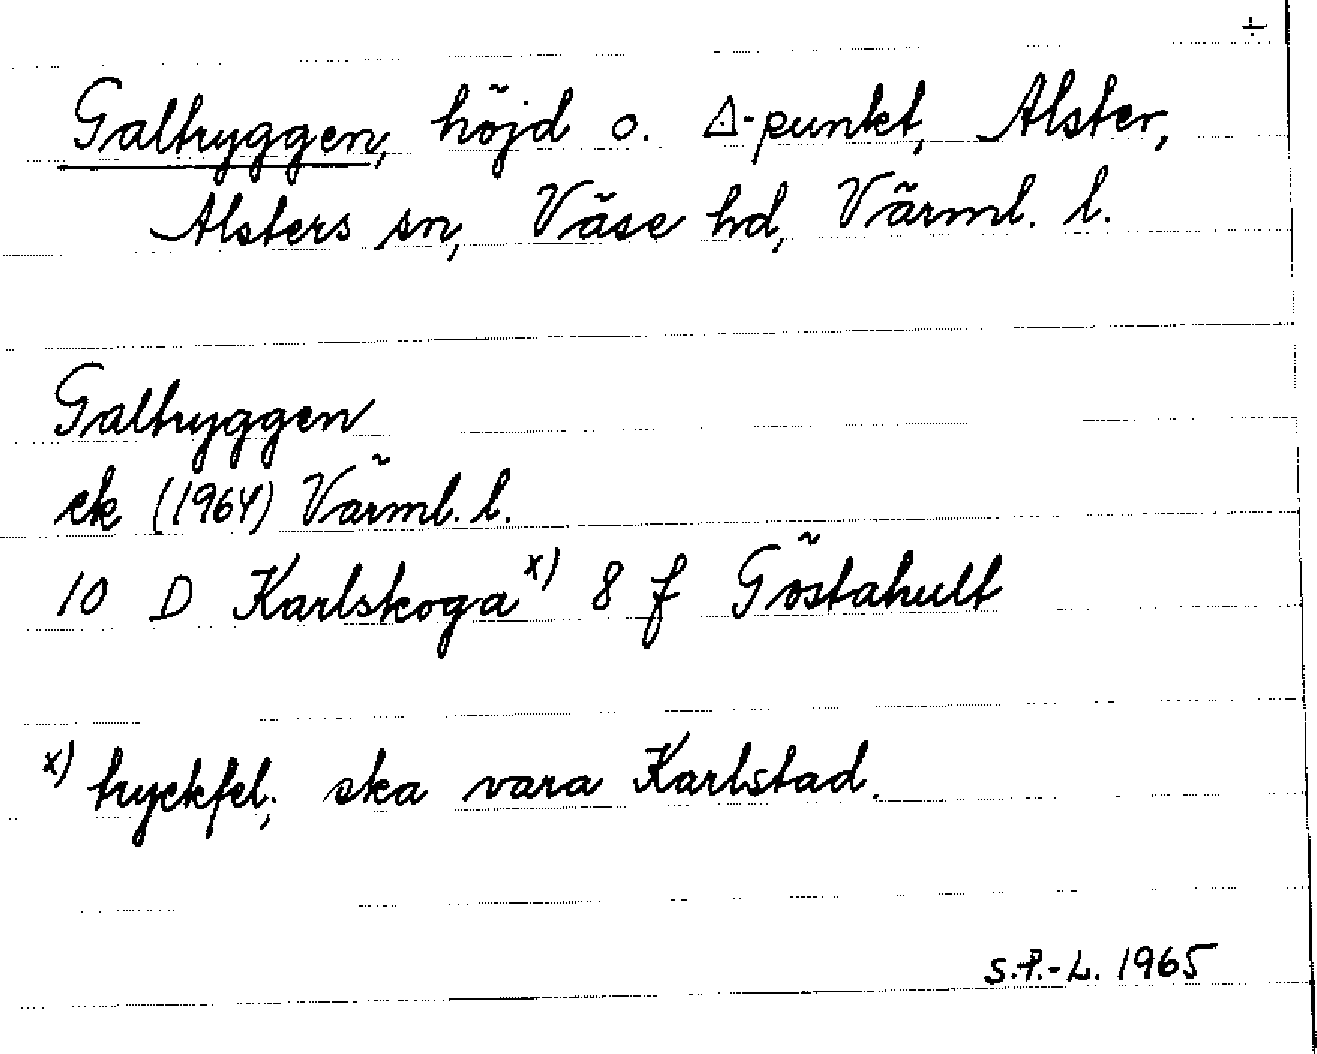 ÷
Galtryggen, höjd o. ∆-punkt, Alster,
Alsters sn, Väse hd, Värml. l.
Galtryggen
ek (1964) Värml. l.
10 D Karlskoga x) 8 f Göstahult
x) tryckfel; ska vara Karlstad.
S.P.-L. 1965